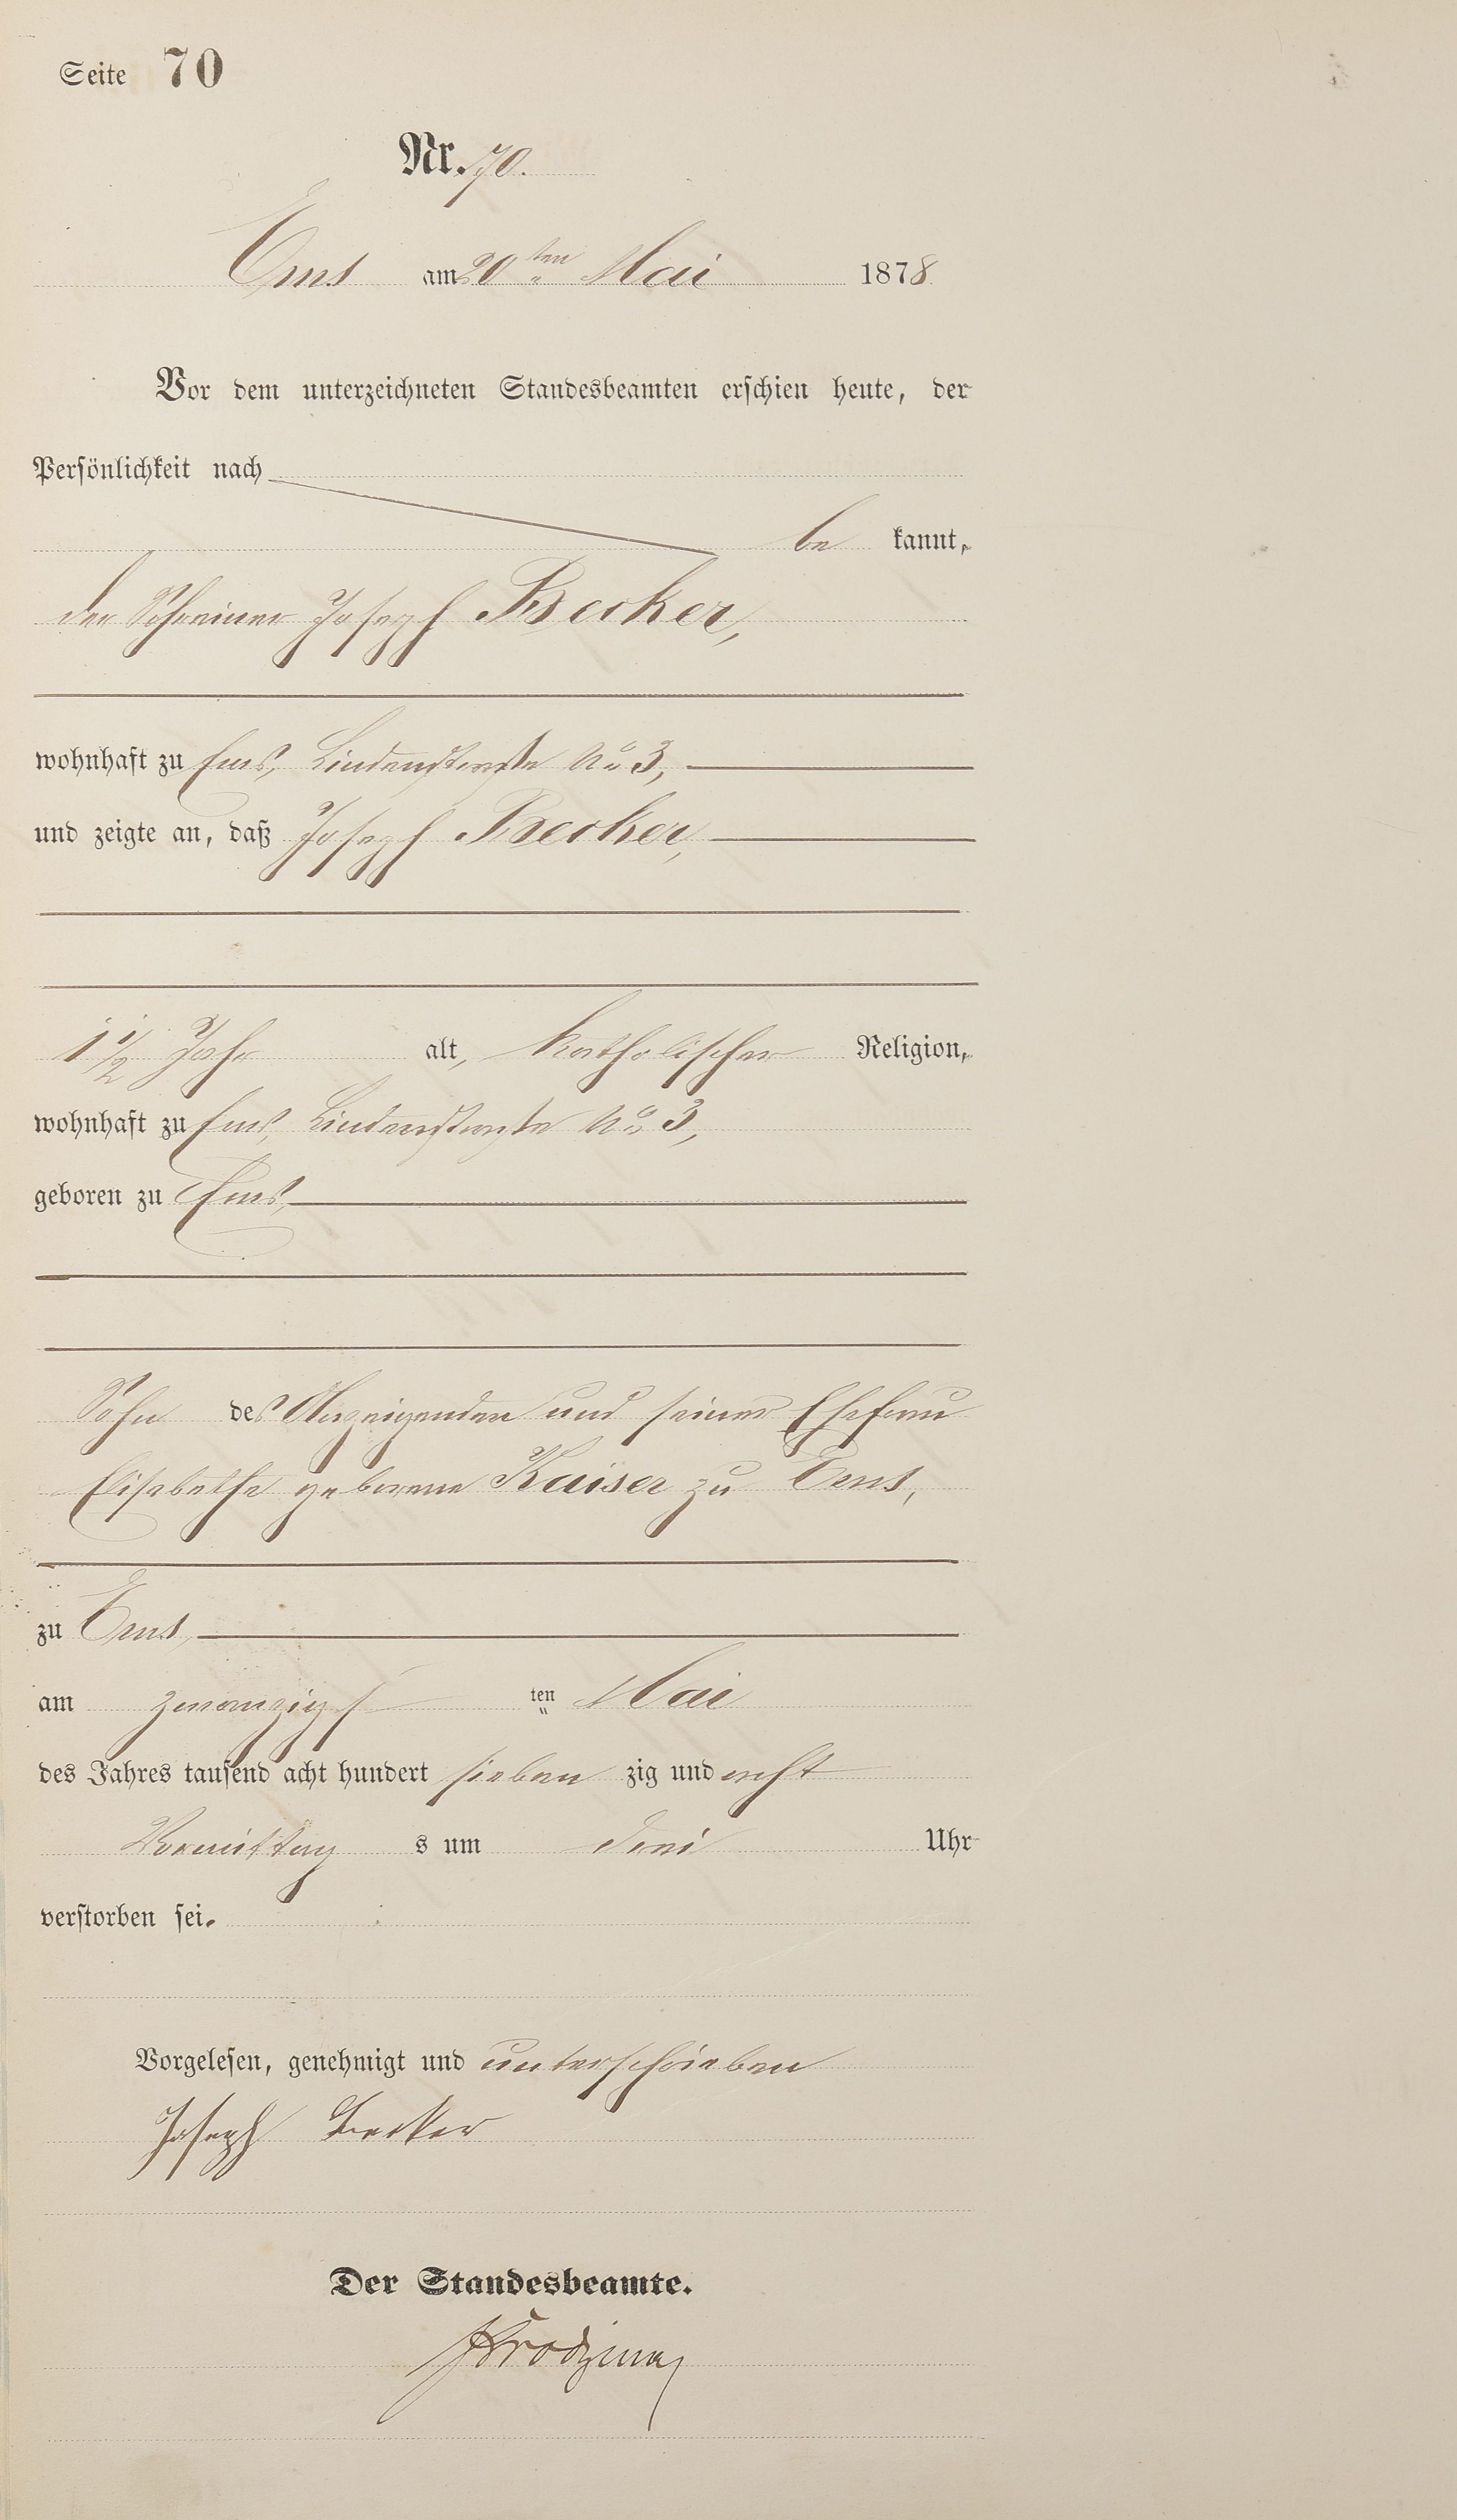 Seite 70
Nr. 70.
Ems am 20ten Mai 1878
Vor dem unterzeichneten Standesbeamten erschien heute, der
Persönlichkeit nach
be kannt,
der Schreiner Joseph Becker,
wohnhaft zu Ems, Lindenstraße No 3,
und zeigte an, daß Joseph Becker,
1 1/2 Jahr alt, katholischer Religion,
wohnhaft zu Ems, Lindenstraße No 3,
geboren zu Ems,
Sohn des Anzeigenden und seiner Ehefrau
Elisabethe geborene Kaiser zu Ems,
zu Ems,
am zwanzigsten Mai
des Jahres tausend acht hundert sieben zig und acht
Vormittag s um drei Uhr
verstorben sei.
Vorgelesen, genehmigt und unterschrieben
Joseph Becker
Der Standesbeamte.